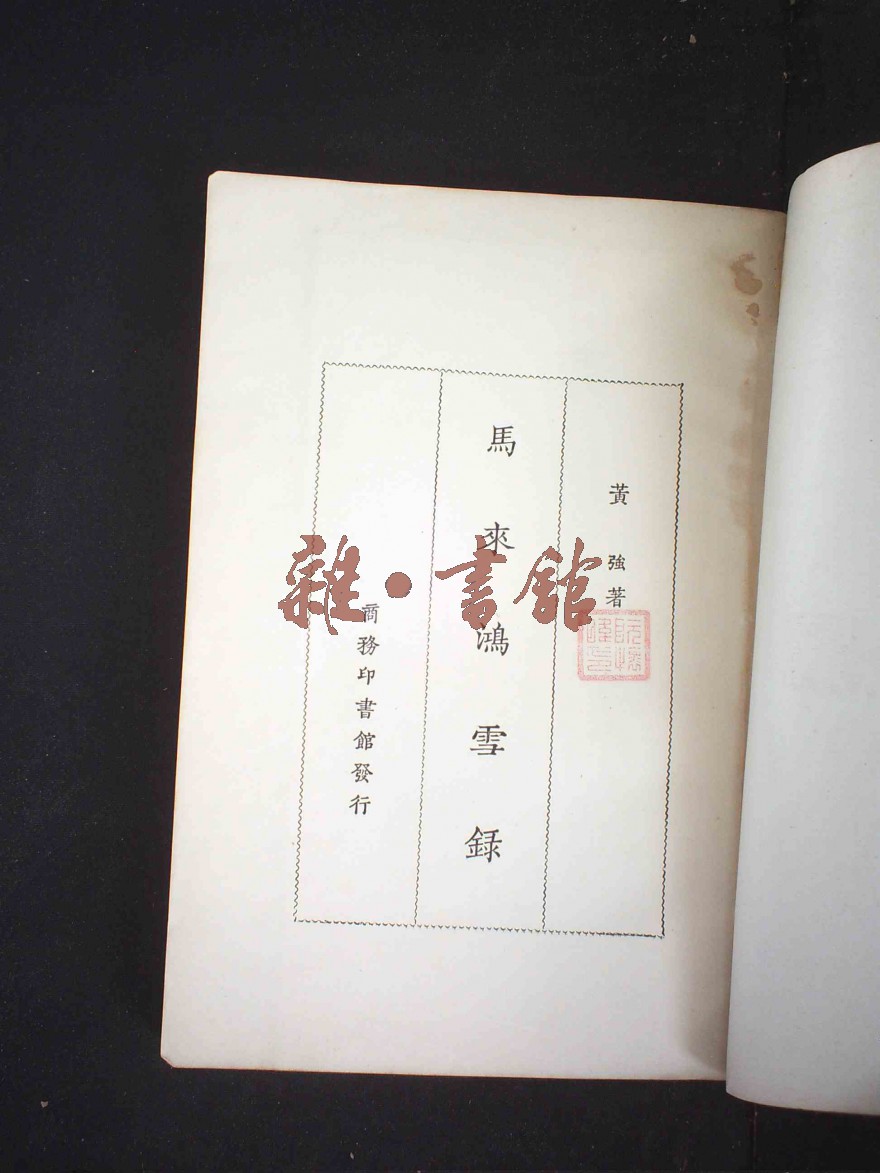 黃強著
馬來鴻雪錄
商務印書館發行
雜·書館